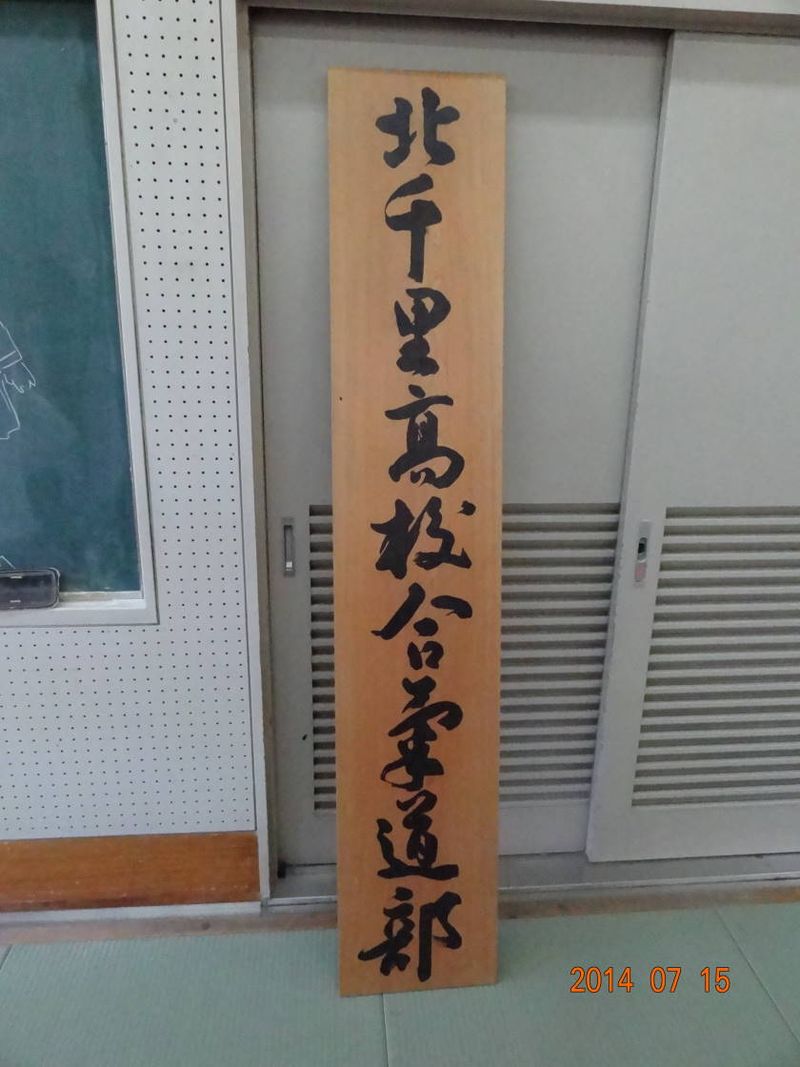 北千里高校合氣道部
2014 07 15